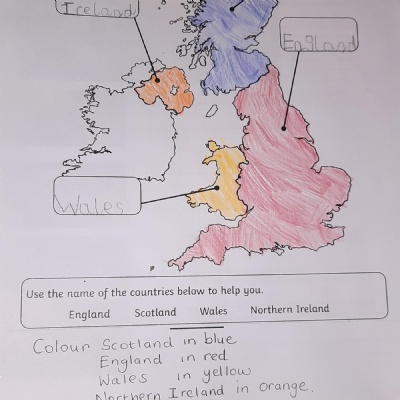 Ireland
England
Wales
Use the name of the countries below to help you.
England Scotland Wales Northern Ireland
Colour Scotland in blue
England in red
Wales in yellow
Northern Ireland in orange.